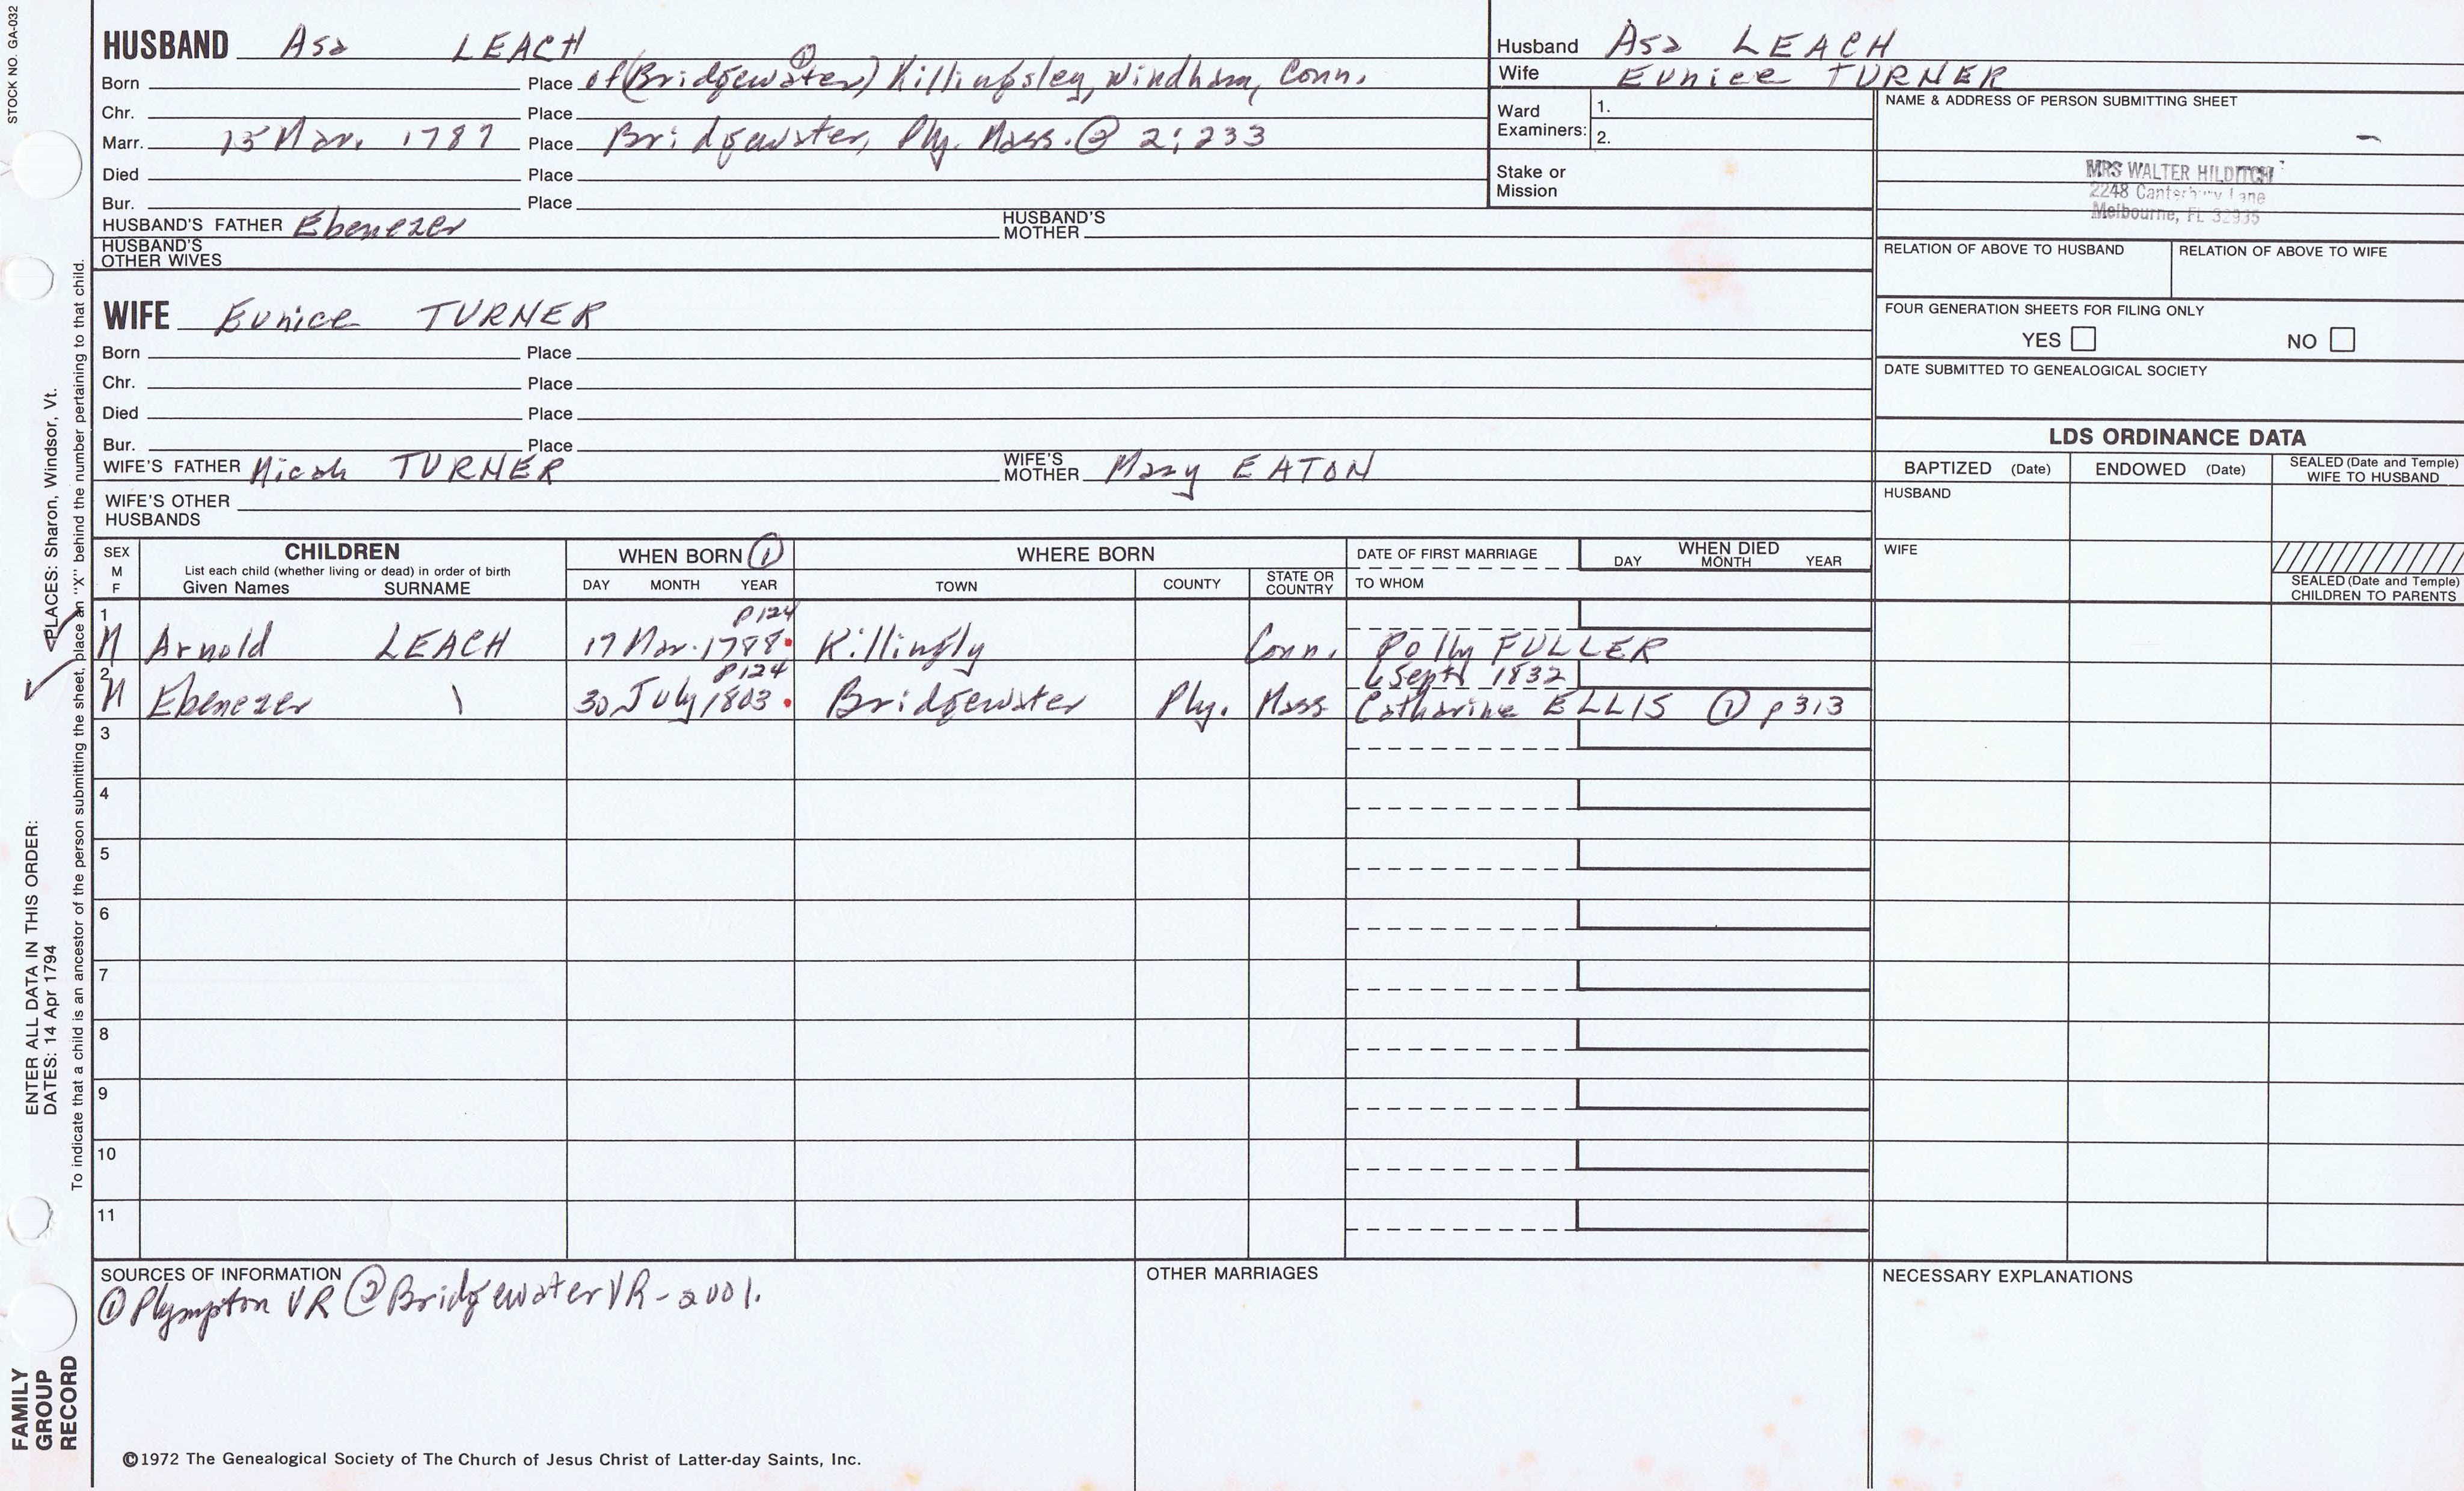 STOCK NO. GA-032
HUSBAND Asa LEACH
Born Place of (Bridgewater) ① Killingsley, Windham, Conn.
Chr. Place
Marr. 15 Mar. 1787 Place Bridgewater, Ply. Mass. ② 2:233
Died Place
Bur. Place
HUSBAND'S FATHER Ebenezer HUSBAND'S MOTHER
HUSBAND'S OTHER WIVES
Husband Asa LEACH
Wife Eunice TURNER
Ward Examiners: 1.
2.
Stake or Mission
NAME & ADDRESS OF PERSON SUBMITTING SHEET
MRS WALTER HILDITCH
2248 Canterbury Lane
Melbourne, FL 32935
RELATION OF ABOVE TO HUSBAND RELATION OF ABOVE TO WIFE
FOUR GENERATION SHEETS FOR FILING ONLY
YES NO
DATE SUBMITTED TO GENEALOGICAL SOCIETY
WIFE Eunice TURNER
Born Place
Chr. Place
Died Place
Bur. Place
WIFE'S FATHER Micah TURNER WIFE'S MOTHER Mary EATON
WIFE'S OTHER HUSBANDS
LDS ORDINANCE DATA
BAPTIZED (Date) ENDOWED (Date) SEALED (Date and Temple) WIFE TO HUSBAND
HUSBAND
WIFE
SEALED (Date and Temple) CHILDREN TO PARENTS
SEX M F
CHILDREN
List each child (whether living or dead) in order of birth
Given Names SURNAME
WHEN BORN ①
DAY MONTH YEAR
WHERE BORN
TOWN COUNTY STATE OR COUNTRY
DATE OF FIRST MARRIAGE
TO WHOM
WHEN DIED
DAY MONTH YEAR
1 p124
M Arnold LEACH 17 Mar. 1788 Killingly Conn. Polly FULLER
2 p124 6 Sept 1832
M Ebenezer \ 30 July 1803 Bridgewater Ply. Mass Catharine ELLIS ① p 313
3
4
5
6
7
8
9
10
11
SOURCES OF INFORMATION
① Plympton VR ② Bridgewater VR - 2001.
OTHER MARRIAGES
NECESSARY EXPLANATIONS
©1972 The Genealogical Society of The Church of Jesus Christ of Latter-day Saints, Inc.
FAMILY GROUP RECORD
ENTER ALL DATA IN THIS ORDER:
DATES: 14 Apr 1794 PLACES: Sharon, Windsor, Vt.
To indicate that a child is an ancestor of the person submitting the sheet, place an "X" behind the number pertaining to that child.